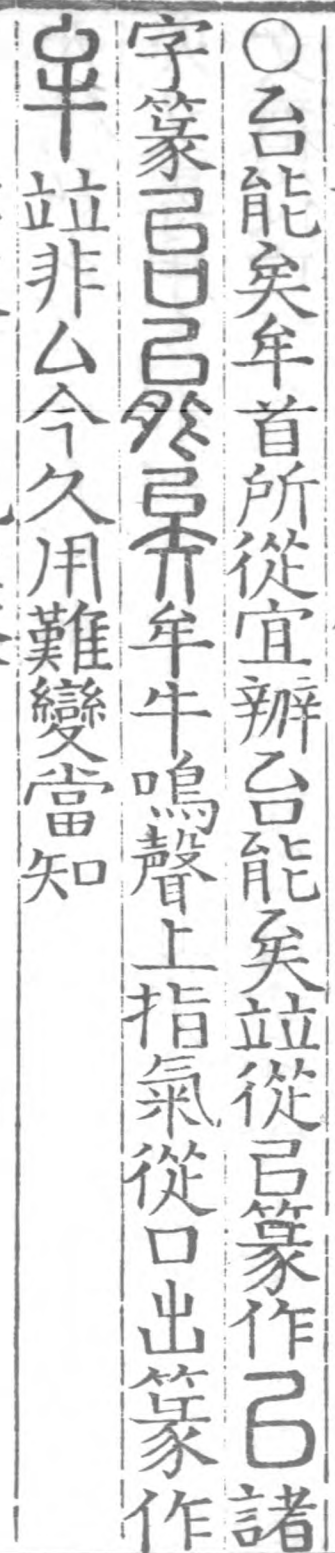 ○台能矣牟首所從宜辧台能矣竝從㠯篆作㠯諸
字篆牟牛鳴聲上指氣從口出篆作
竝非厶今久用難變當知